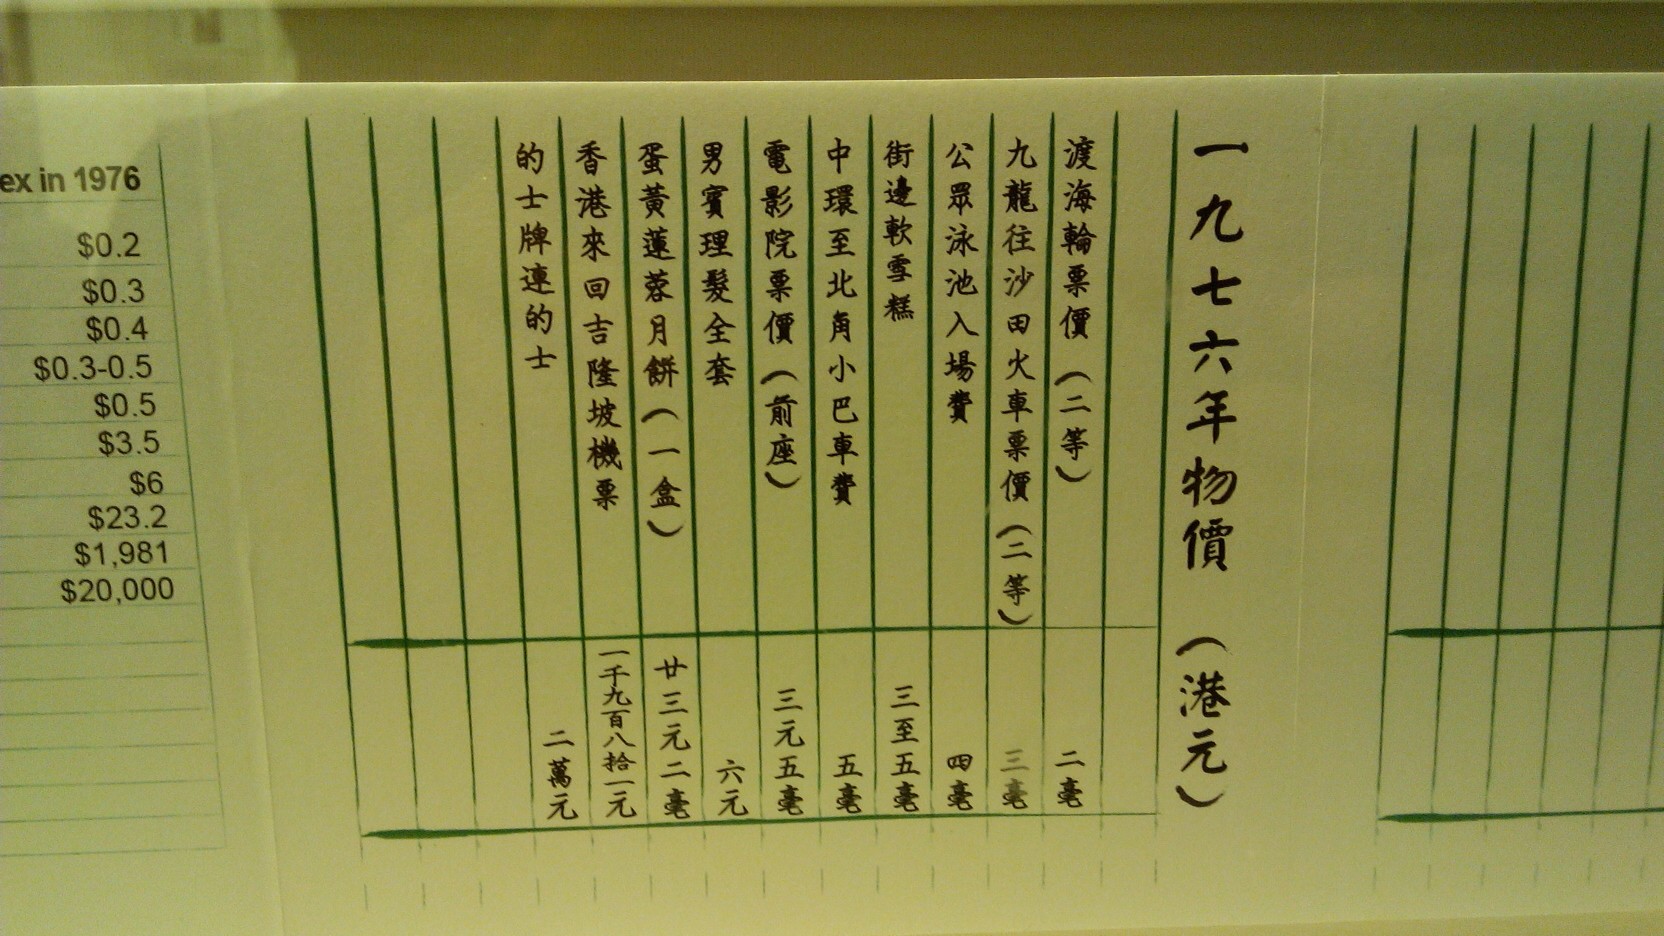 一九七六年物價 (港元)
渡海輪票價(二等) 二毫
九龍往沙田火車票價(二等) 三毫
公眾泳池入場費 四毫
街邊軟雪糕 三至五毫
中環至北角小巴車費 五毫
電影院票價(前座) 三元五毫
男賓理髮全套 六元
蛋黃蓮蓉月餅(一盒) 廿三元二毫
香港來回吉隆坡機票 一千九百八拾一元
的士牌連的士 二萬元
ex in 1976
$0.2
$0.3
$0.4
$0.3-0.5
$0.5
$3.5
$6
$23.2
$1,981
$20,000